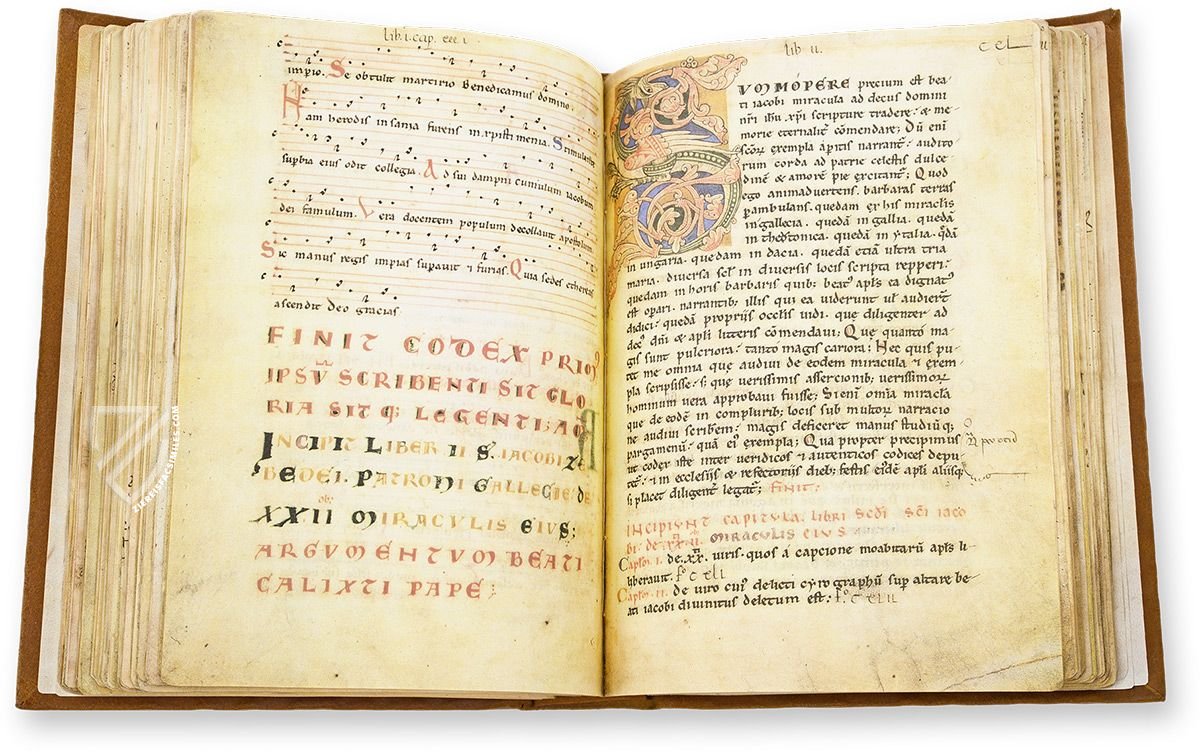 lib. i. cap.
impio. Se obtulit martirio Benedicamus domino.
Nam herodis insania furens in xpisti menia. Stimulatus
supbia eius odit collegia. Ad sui dampni cumulum iacobum
dei famulum. Vera docentem populum decollavit apostolum
Sic manus regis impias supavit & furias. Quia sedes ethereas
ascendit Deo gracias.
FINIT CODEX PRIM9
IPSV SCRIBENTI SIT GLO
RIA SIT Q; LEGENTIBVS
INCIPIT LIBER II S. IACOBI ZE
BEDEI. PATRONI GALLECIE: DE
XXII MIRACULIS EIUS;
ARGVMENTVM BEATI
CALIXTI PAPE;
lib. ii.
SVMMOPERE precium est bea-
ti iacobi miracula ad decus domini
nri ihu xpi scripture tradere; & me-
morie eternalit comendare; Dū eni
scor exempla a narrant; audito
rum corda ad patrie celestis dulce
dinē & amorē pie excitant; Quod
ego animadvertens. barbaras terras
pambulans. quedam ex his miraclis
in gallecia. quedā in gallia. quedā
in theotonica. quedā in ytalia. qdā
in ungaria. quedam in dacia. quedā etiā ultra tria
maria. diversa scl in diversis locis scripta repperi;
quedam in horis barbaris quib; beat9 apls ea dignat9
est opari. narrantib; illis qui ea viderunt ul audiert
didici; quedā proprijs occlis vidi. que diligenter ad
dec9 dni & apli litteris comendavi; Que quanto ma-
gis sunt pulcriora. tanto magis cariora; Nec quis pu-
tet me omnia que audivi de eodem miracula & exem-
pla scripsisse. s; que verissimis assercionib; verissimor
hominum vera approbavi fuisse; Si eni omia miracla
que de eodē in complurib; locis sub multor narracio
ne audivi scribem; magis deficeret manus studiū q;
pargamenū. quā ei9 exempla; Qua propter precipimus
ut codex iste inter veridicos & autenticos codices depu-
tet; & in ecclesijs & refectorijs dieb; festis eidē apli alijsq;
si placet diligent legat; finit;
INCIPIUNT CAPITULA. LIBRI SEDI SCI IACO
BI. DE XXII. MIRACULIS EIUS
Caplm. I. De xx. viris. quos a capcione moabitarū apls li-
beravit. fo cxli
Caplm. II. de viro cui9 delicti cyrographū sup altare be-
ati iacobi divinitus deletum est.
ZIEREISFACSIMILES.COM